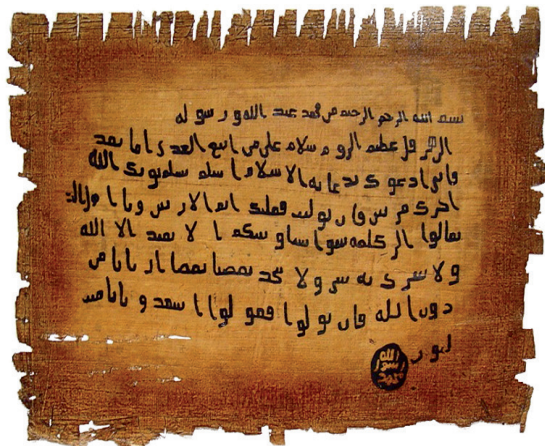 بسم الله الرحمن الرحيم من محمد عبد الله ورسوله
الى هرقل عظيم الروم سلام على من اتبع الهدى اما بعد
فاني ادعوك بدعاية الاسلام اسلم تسلم يوتك الله
اجرك مرتين فان توليت فعليك اثم الاريسين ويا اهل الكتاب
تعالوا الى كلمة سوا بيننا وبينكم الا نعبد الا الله
ولا نشرك به شيا ولا يتخذ بعضنا بعضا اربابا من
دون الله فان تولوا فقولوا اشهدوا بانا مس
لمون
الله
رسول
محمد